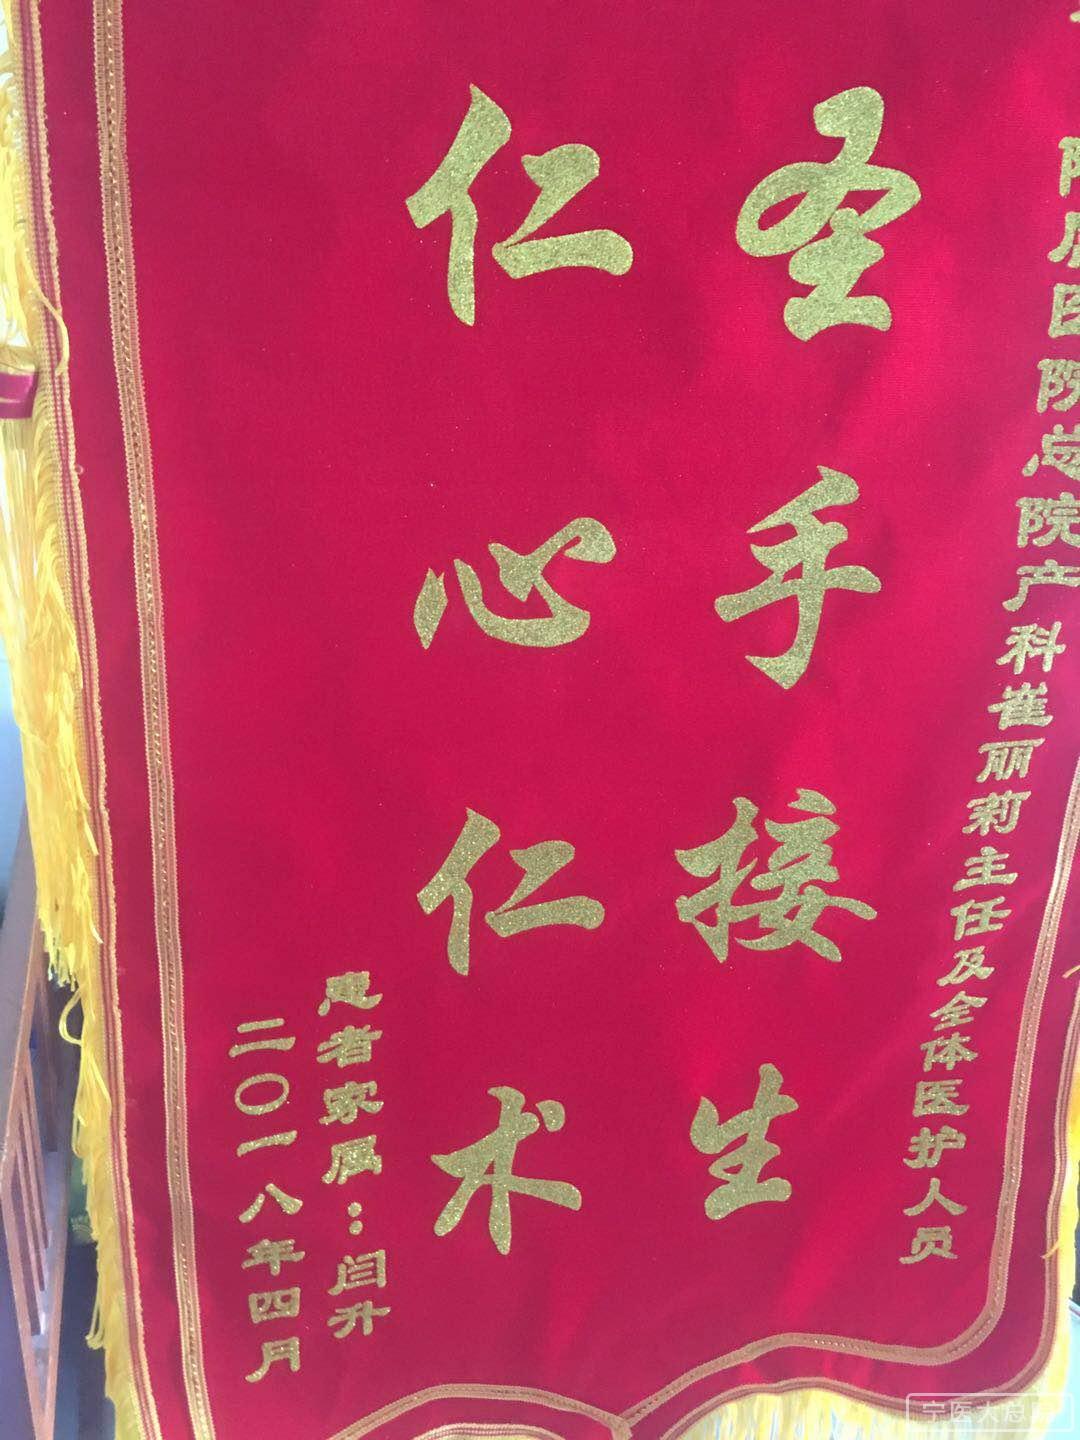 医院总院产科崔丽莉主任及全体医护人员
圣手接生
仁心仁术
患者家属：闫升
二〇一八年四月
宁医大总院